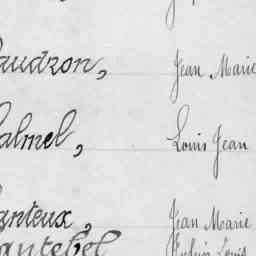 audron, Jean Marie
almel, Louis Jean
anteux, Jean Marie
antebel Louis